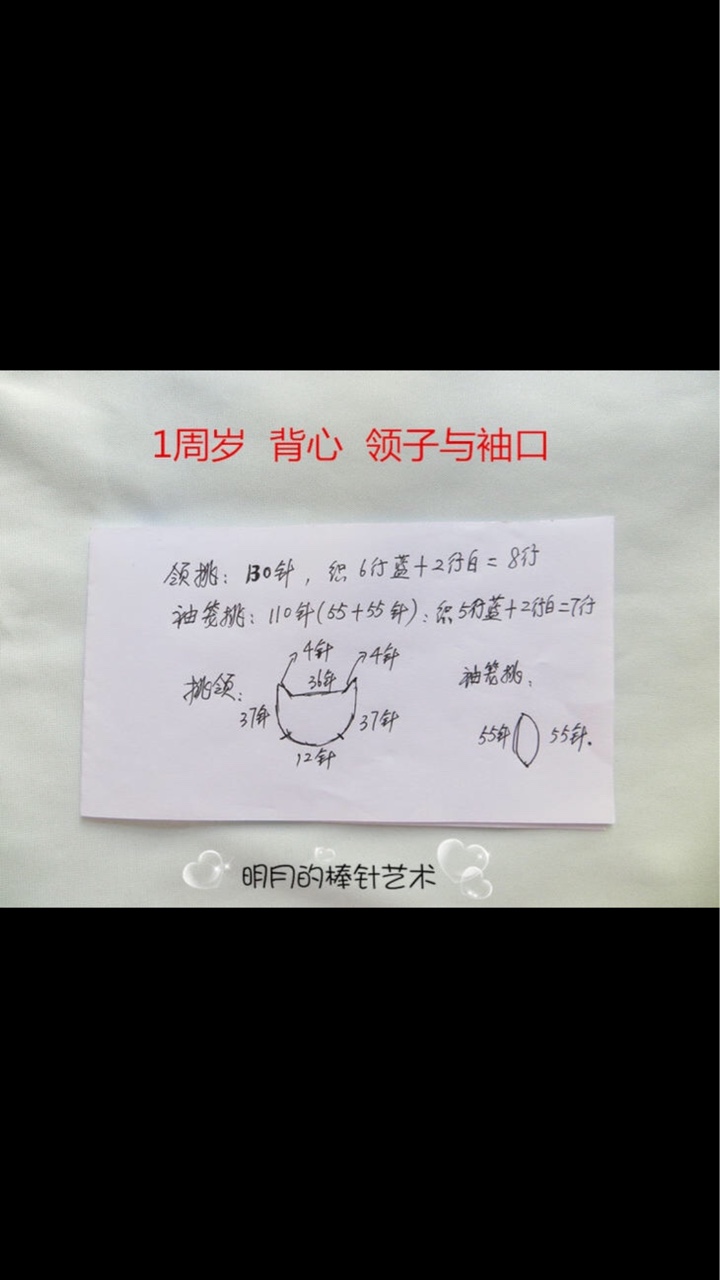 1周岁 背心 领子与袖口
领挑：130针，织6行蓝+2行白=8行
袖笼挑：110针(55+55针)：织5行蓝+2行白=7行
4针 4针
36针
挑领： 袖笼挑：
37针 37针
55针 55针.
12针
明月的棒针艺术